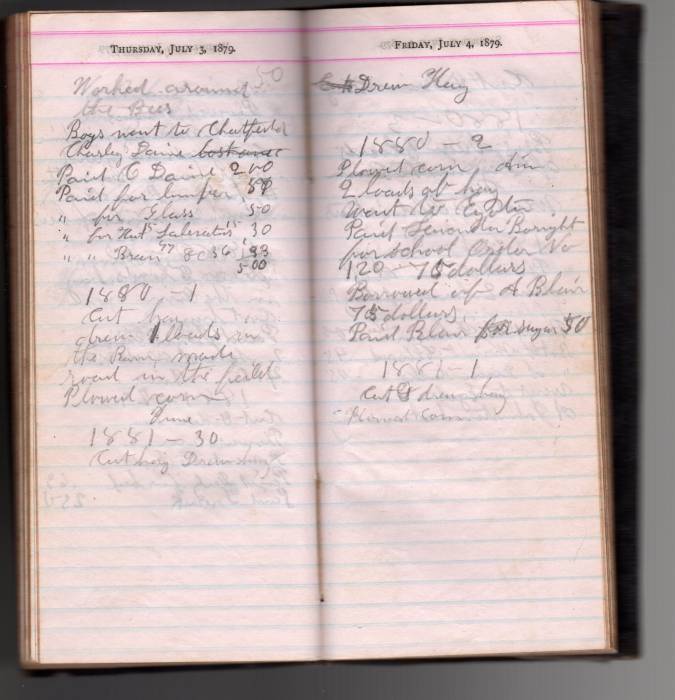 THURSDAY, JULY 3, 1879.
Worked around 50
the Bees
Boys went to
Charley Daine
Paid C Daine 2 00
Paid for
" for Glass 50
" for Saleratus 30
" " 93
5 00
1880 - 1
Cut hay
drew loads in
the Barn made
road in the field
Plowed corn
June
1881 - 30
Cut hay Drew hay
FRIDAY, JULY 4, 1879.
Drew Hay
1880 - 2
Plowed corn
2 loads of hay
Went to
Paid
for school Order No
120 75 dollars
Borrowed of A Blair
75 dollars,
Paid Blair for sugar 50
1881 - 1
Cut & drew hay
Plowed Corn